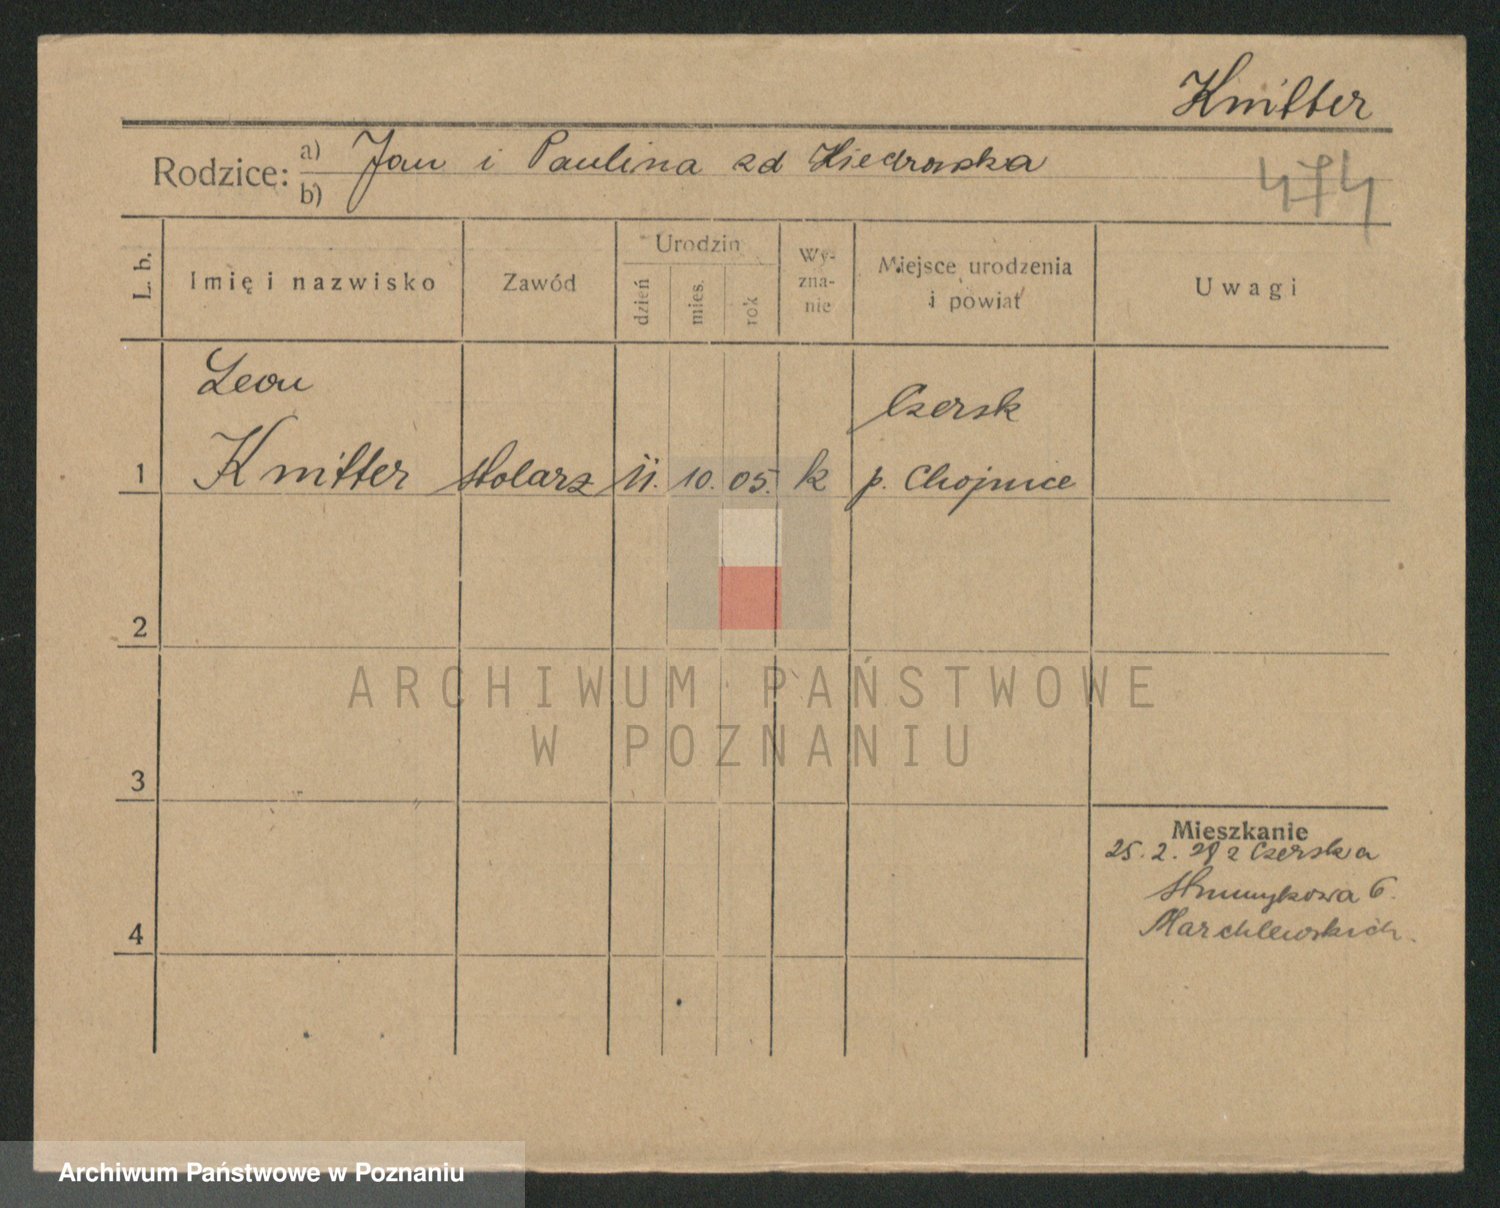 Knitter
Rodzice: a) Jan i Paulina zd Kiedrowska
b)
474
L. b.
Imię i nazwisko
Zawód
Urodzin
dzień
mies.
rok
Wy-
zna-
nie
Miejsce urodzenia
i powiat
Uwagi
Leon
Czersk
1 Knitter stolarz 11. 10. 05. k p. Chojnice
2
3
4
Mieszkanie
25. 2. 28 z Czerska
6.
Marchlewskich.
ARCHIWUM PAŃSTWOWE
W POZNANIU
Archiwum Państwowe w Poznaniu